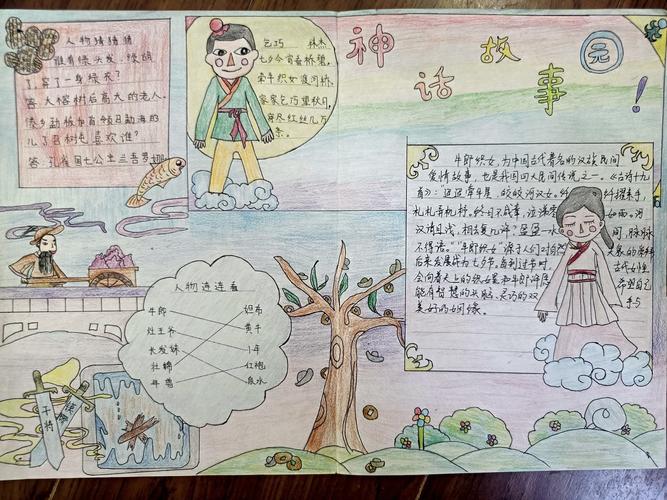 神话故事园!
人物猜猜猜
谁有绿头发,绿胡
子,穿了一身绿衣?
答:大榕树后高大的老人。
傣乡勐板加有领召勐海的
儿子召树屯喜欢谁?
答:孔雀国七公主兰吾罗娜
乞巧 林杰
七夕今宵看碧霄,
牵牛织女渡河桥。
家家乞巧望秋月,
穿尽红丝几万
条。
人物连连看
牛郎 担布
灶王爷 黄牛
长发妹 1年
杜鹃 红袍
年兽 泉水
干将
牛郎织女,为中国古代著名的汉族民间
爱情故事,也是我国四大民间传说之一。《古诗十九
首》:“迢迢牵牛星,皎皎河汉女。纤 纤擢素手,
札札弄机杼。终日不成章,泣涕零 如雨。河
汉清且浅,相去复几许?盈盈一水 间,脉脉
不得语。”“牛郎织女”源于人们对自 天象的崇拜
后来发展成为七夕节。每到过节时, 古代女性
会向着天上的织女星和牛郎祥 希望自己
能有智慧的头脑、灵巧的双 手与
美好的姻缘。